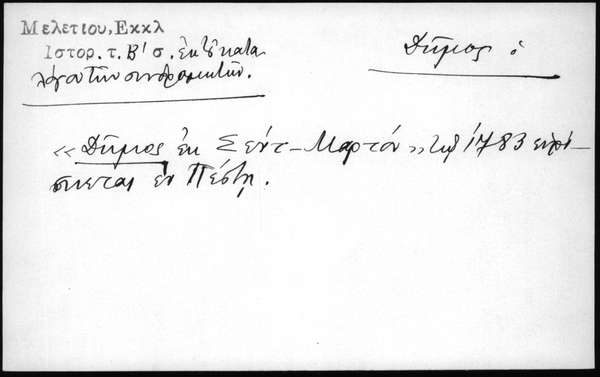 Μελετίου, Εκκλ
Ιστορ. τ. Β' σ. ἐκ τοῦ κατα-
λόγου τῶν συνδρομητῶν.
Δῆμος ὁ
«Δῆμος ἐκ Σέντ-Μαρτόν» τῷ 1783 εὑρί-
σκεται ἐν Πέστῃ.